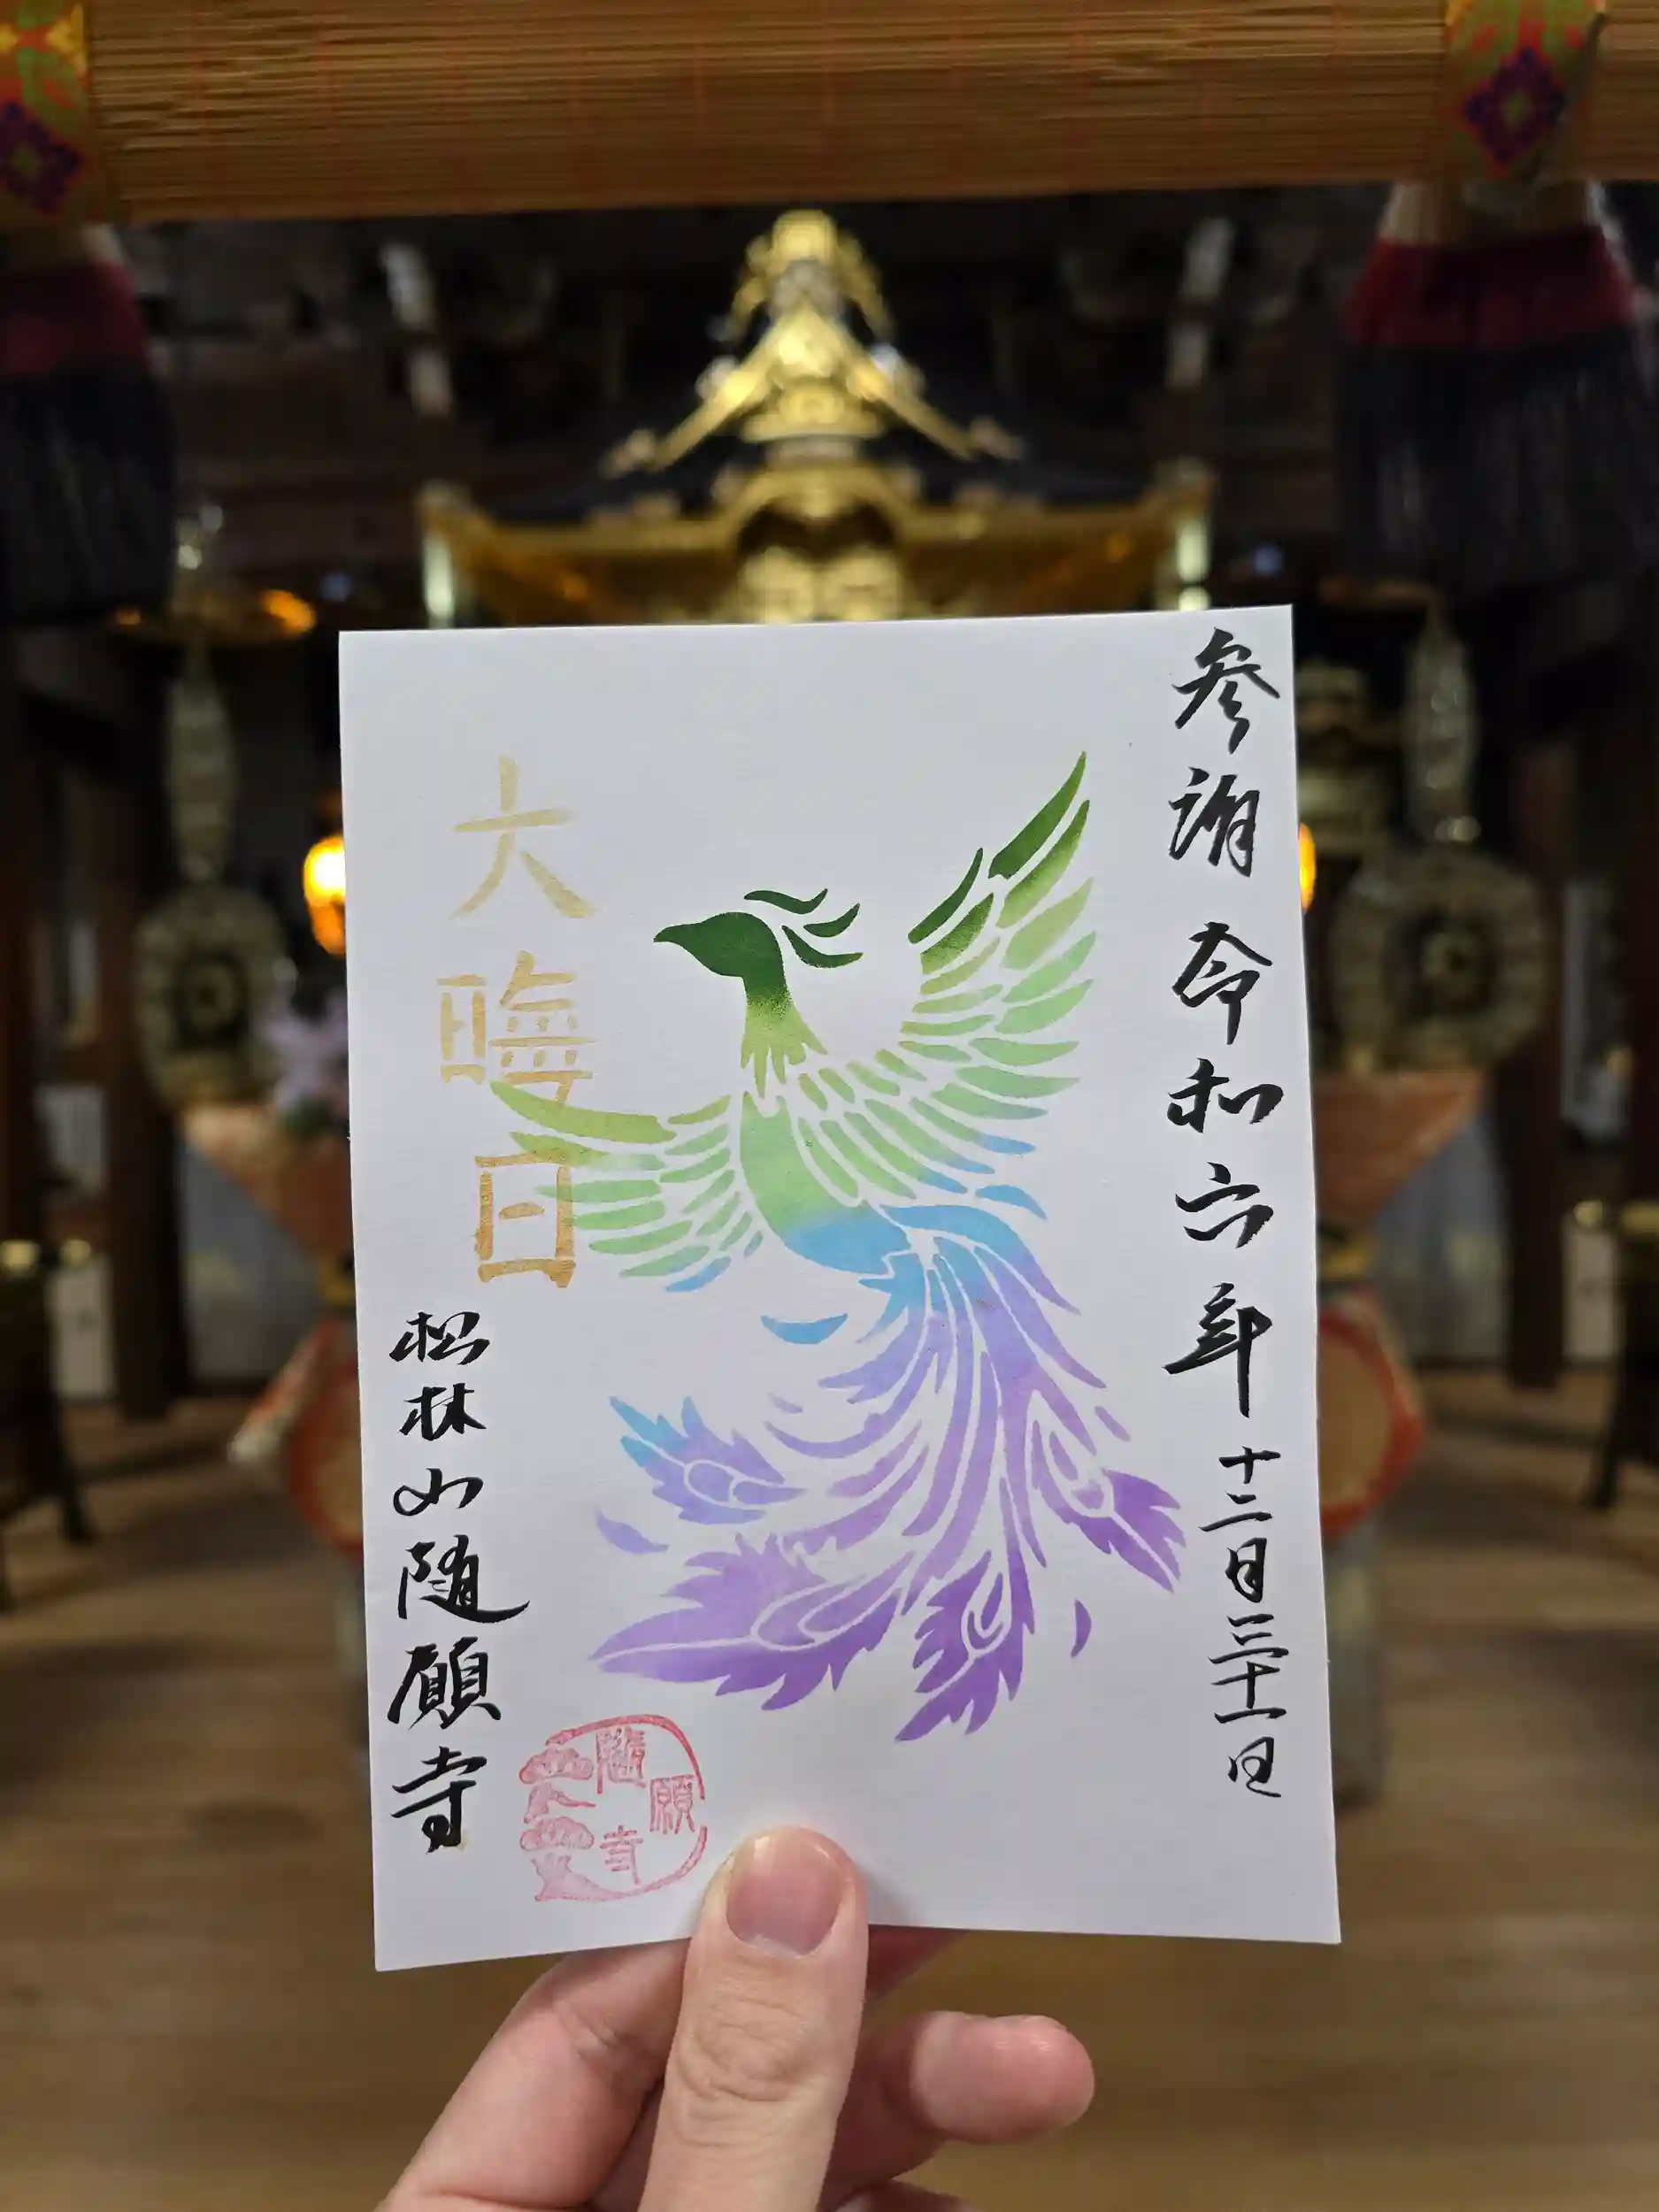 参詣 令和六年 十二月三十一日
大晦日
松林山随願寺
随願寺